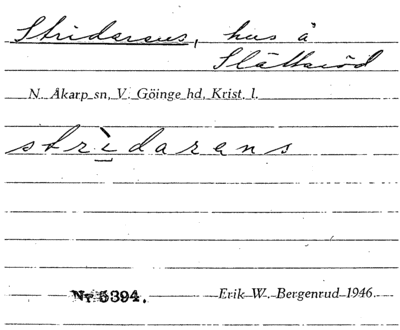 Stridareus, hus å
Slättaröd
N. Åkarp sn, V. Göinge hd, Krist. l.
strìdarens
Nr 5394.
Erik W. Bergenrud 1946.